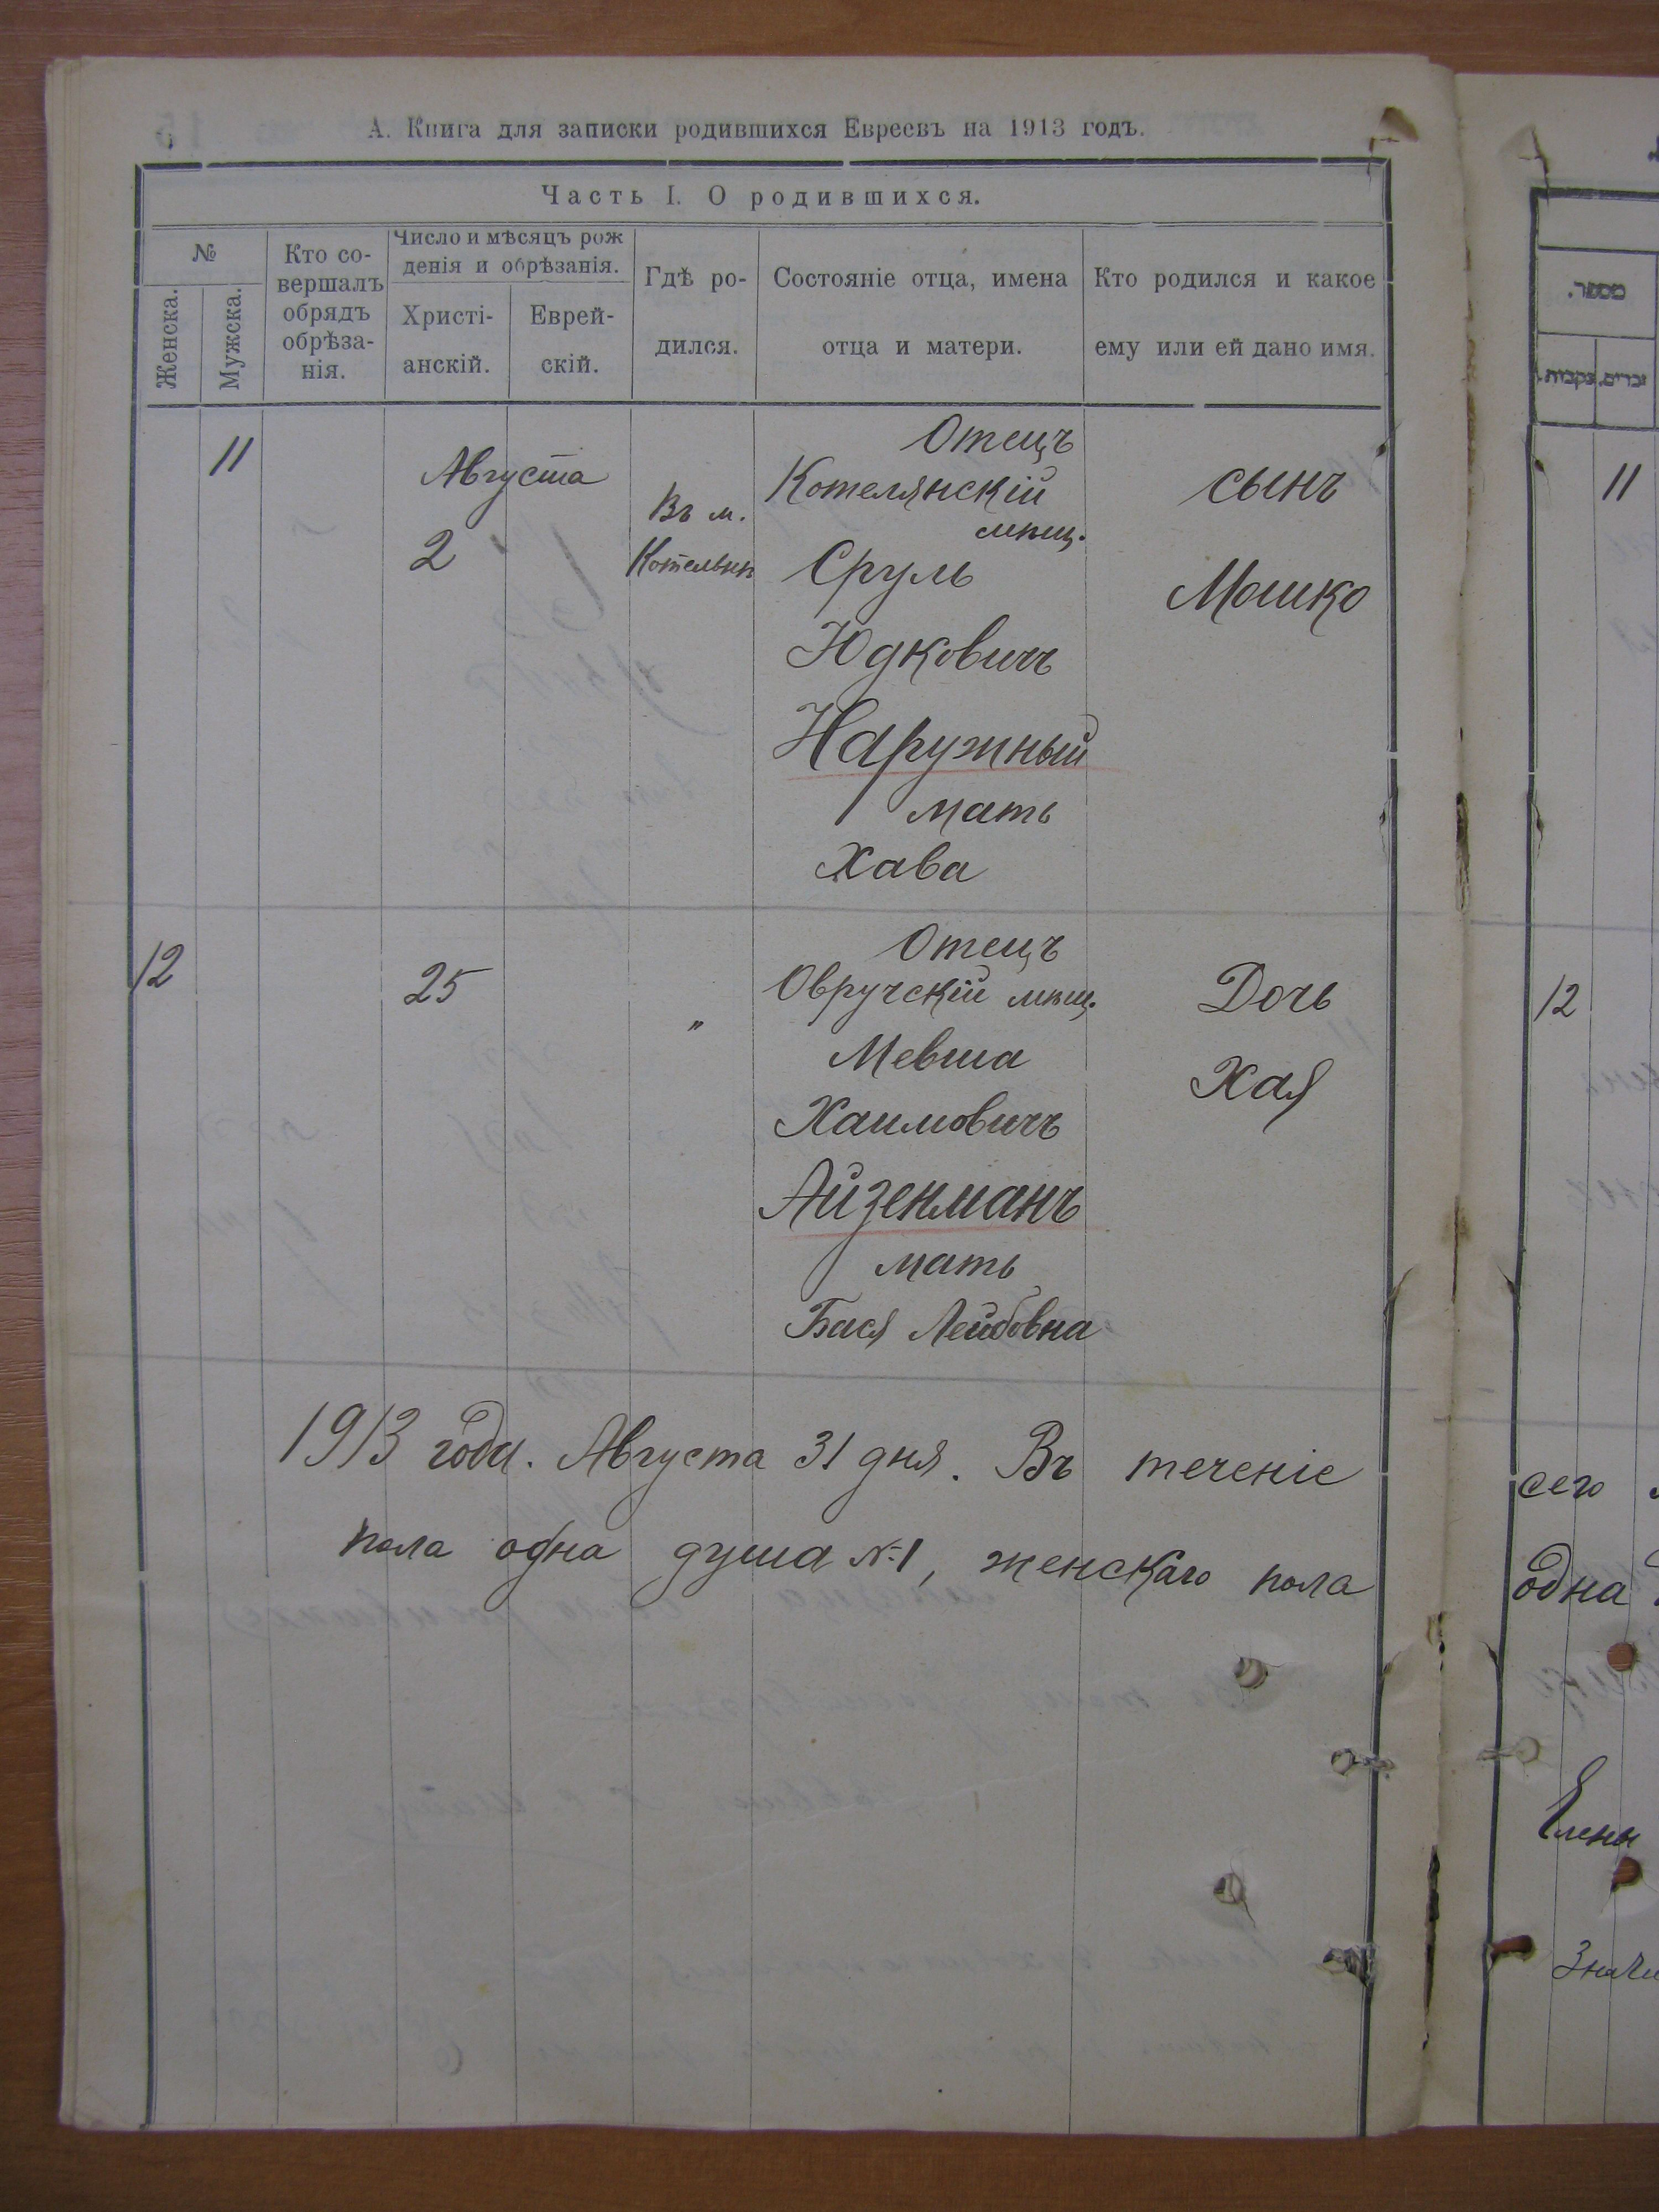 А. Книга для записки родившихся Евреевъ на 1913 годъ.
Часть I. О родившихся.
№
Женска.
Мужска.
Кто со-
вершалъ
обрядъ
обрѣза-
нія.
Число и мѣсяцъ рож
денія и обрѣзанія.
Христі-
анскій.
Еврей-
скій.
Гдѣ ро-
дился.
Состояніе отца, имена
отца и матери.
Кто родился и какое
ему или ей дано имя.
11
Августа
2
Въ м.
Отецъ
Котелянскій
мѣщ.
Сруль
Юдковичъ
Наружный
мать
Хава
сынъ
Мошко
12
25
"
Отецъ
Овручскій мѣщ.
Мевша
Хаимовичъ
Айзенманъ
мать
Бася Лейбовна
Дочь
Хая
1913 года. Августа 31 дня. Въ теченіе
пола одна душа №1, женскаго пола
מספר.
זכרים.
נקבות.
11
12
сего
одна
Елены